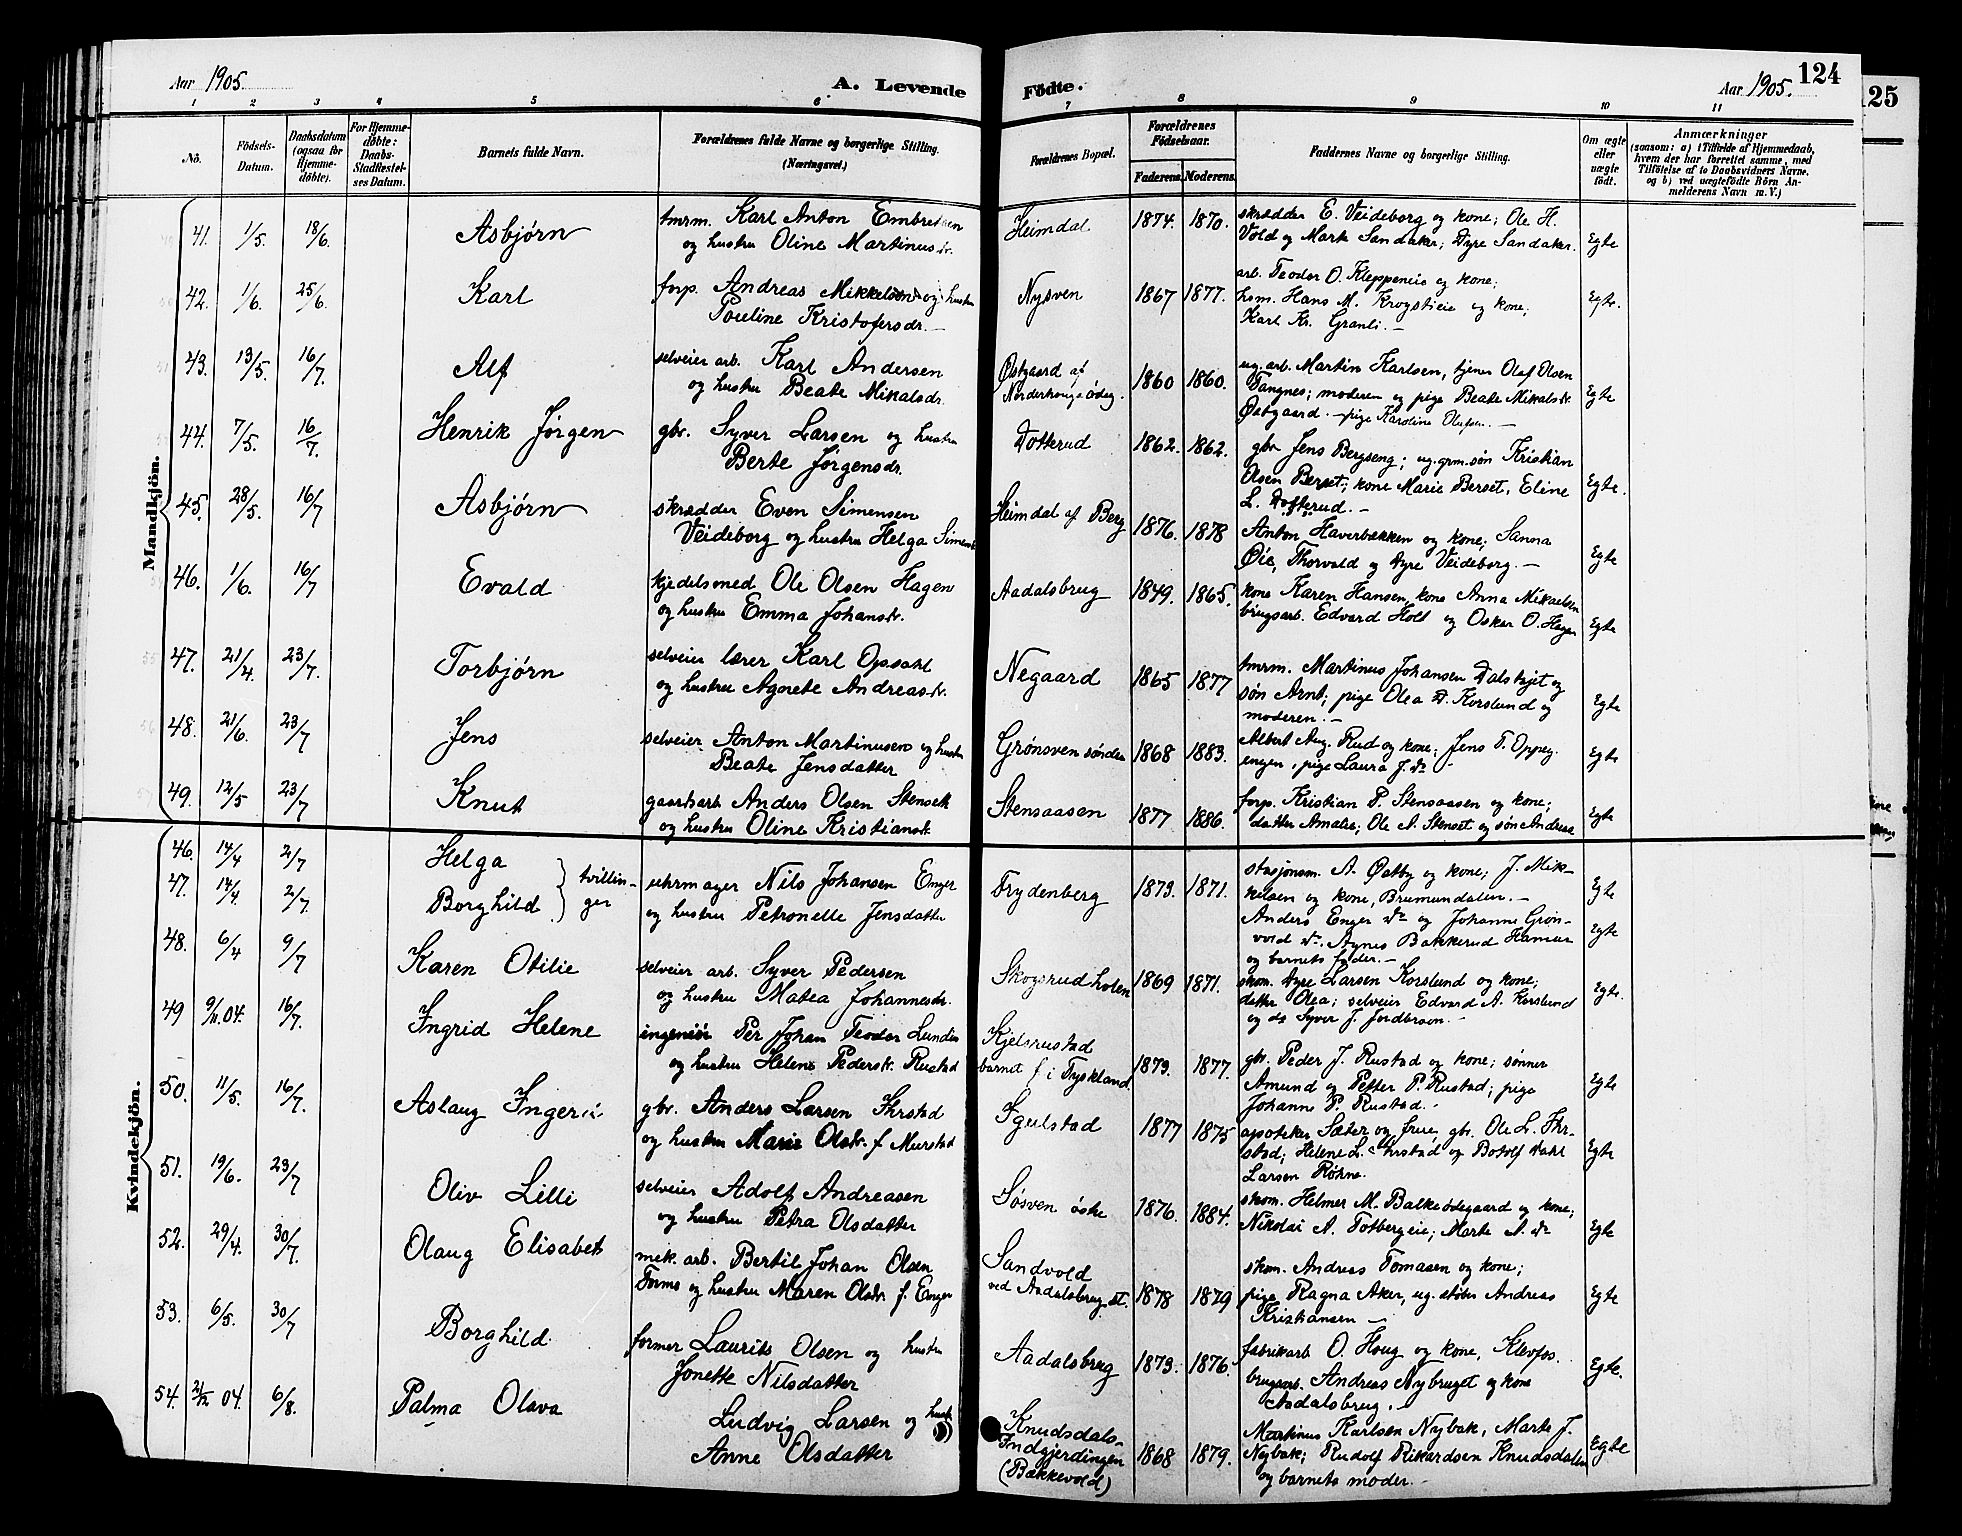 Aar 1905. A. Levende Fødte. Aar 1905. 124
125
1 2 3 4 5 6 7 8 9 10 11
No. Fødsels-Datum. Daabsdatum (ogsaa for Hjemmedøbte). For Hjemmedøbte: Daabs-Stadfæstelses Datum. Barnets fulde Navn. Forældrenes fulde Navne og borgerlige Stilling. (Næringsvei.) Forældrenes Bopæl. Forældrenes Fødselsaar. Faderens. Moderens. Faddernes Navne og borgerlige Stilling. Om ægte eller uægte født. Anmærkninger (saasom: a) i Tilfælde af Hjemmedaab, hvem der har forrettet samme, med Tilføielse af to Daabsvidners Navne, og b) ved uægtefødte Børn Anmelderens Navn m. V.)
Mandkjøn.
41. 1/5. 18/6. Asbjørn tmrm. Karl Anton Embretsen Heimdal 1874. 1870. skrædder E. Veideborg og kone; Ole H.
og hustru Oline Martinusdr. Vold og Marte Sandaker; Dyre Sandaker. Egte
42. 1/6. 25/6. Karl forp. Andreas Mikkelsen og hustru Nysven 1867 1877. arb. Teodor O. Kleppeneie og kone;
Pouline Kristofersdr. — hsm. Hans M. Krogstieie og kone; Egte.
Karl Kr. Granli. —
43. 13/5. 16/7. Alf selveier arb. Karl Andersen Østgaard af 1860 1860. ug. arb. Martin Karlsen, tjener Olaf Olsen
og hustru Beate Mikalsdr. Norderhougs ødeg. Tangnes; moderen og pige Beate Mikalsdr. Egte
Østgaard. — pige Karoline Olufsen. —
44. 7/5. 16/7. Henrik Jørgen gbr. Syver Larsen og hustru Dotterud 1862. 1862. gbr Jens Bergseng; ug. grm. søn Kristian
Berte Jørgensdr. Olsen Berset; kone Marie Berset, Eline Egte.
L. Dotterud. —
45. 28/5. 16/7 Asbjørn skrædder Even Simensen Heimdal af Berg 1876. 1878 Anton Haverbækken og kone; Sanna
Veideborg og hustru Helga Simensdr. Øie, Thorvald og Dyre Veideborg. — Egte
46. 1/6. 16/7 Evald kjedelsmed Ole Olsen Hagen Aadalsbrug 1849. 1865. kone Karen Hansen, kone Anna Mikaelsen
og hustru Emma Johansdr. brugsarb. Edvard Holt og Oskar O. Hagen Egte
47. 21/4. 23/7. Torbjørn selveier lærer Karl Opsahl Negaard 1865 1877 tmrm. Martinus Johansen Dalshjet og
og hustru Agnete Andreasdr. søn Arnt; pige Olea D. Korslund og Egte
moderen. —
48. 21/6. 23/7 Jens selveier Anton Martinusen og hustru Grønsven søndre 1868 1883. Albert Aug. Rud og kone; Jens T. Oppeg-
Beate Jensdatter engen, pige Laura J. do — Egte
49. 12/5 23/7 Knut gaardsarb Anders Olsen Stenset Stensaasen 1877 1886. forp. Kristian P. Stensaasen og kone;
og hustru Oline Kristiansdr. datter Amalie; Ole A. Stenset og søn Andreas Egte
Kvindekjøn.
46. 14/4 2/7 Helga } tvillin- skrmager Nils Johansen Enger Frydenberg 1873. 1871. stasjonsm. A. Østby og kone; J. Mik-
47. 14/4 2/7. Borghild } ger og hustru Petronelle Jensdatter kelsen og kone, Brumundalen. — Egte
Anders Enger do og Johanne Grøn-
vold do. Agnes Bakkerud Hamar Egte
og barnets fader. —
48. 6/4 9/7 Karen Otilie selveier arb. Syver Pedersen Skogsrudholen 1869 1871. skom. Dyre Larsen Korslund og kone;
og hustru Matea Johannesdr. datter Olea; selveier Edvard A. Korslund Egte.
og do Syver J. Jordbraaen. —
49 9/11.04. 16/7. Ingrid Helene ingeniør Per Johan Teodor Lundin Kjelsrustad
og hustru Helene Pedersdr. Rustad barnet f. i Tyskland 1873. 1877. gbr. Peder J. Rustad og kone; sønner
Amund og Petter P. Rustad; pige Egte
Johanne P. Rustad. —
50. 11/5. 16/7. Aslaug Ingerid gbr. Anders Larsen Ihrstad Igulstad 1877 1875 apoteker Sæter og frue, gbr. Ole L. Ihr-
og hustru Marie Olsdr. f. Murstad stad; Helene L. Ihrstad og Botolf Dahl Egte
Larsen Røhne.
51. 19/6. 23/7 Oliv Lilli selveier Adolf Andreasen Søsven østre 1876. 1884. skom. Helmer M. Balkeødegaard og kone;
og hustru Petra Olsdatter Nikolai A. Totbergeie; Marte A. do Egte
52. 29/4. 30/7. Olaug Elisabet mek. arb. Bertil Johan Olsen Sandvold skom. Andreas Tomasen og kone;
Tomo og hustru Maren Olsdr. f. Enger ved Aadalsbrug st. 1878 1879 pige Ragna Aker, ug. støber Andreas Egte
Kristiansen —
53. 6/5. 30/7 Borghild former Laurits Olsen og hustru Aadalsbrug 1873. 1876. fabrikarb O. Houg og kone, Klevfos.
Jonette Nilsdatter brugsarb. Andreas Nybruget og kone Egte.
Aadalsbrug. —
54. 2/12 04. 6/8. Palma Olava Ludvig Larsen og hustru Knudsdals- Martinus Karlsen Nybak, Marte J.
Anne Olsdatter Indgjerdingen 1868 1879. Nybak; Rudolf Rikardsen Knudsdalen Egte
(Bækkevold) og barnets moder. —